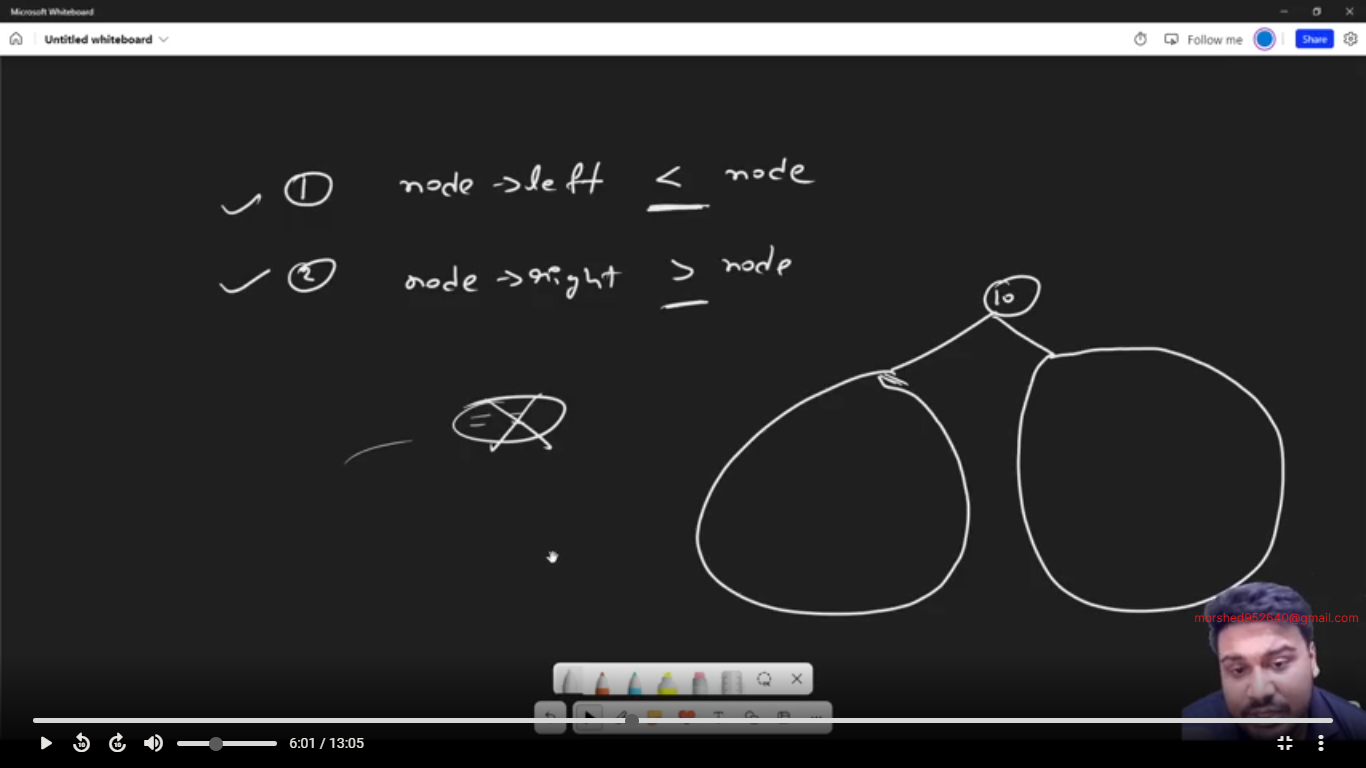 Microsoft Whiteboard
Untitled whiteboard
Follow me
Share
1 node ->left < node
2 node ->right > node
10
==
morshed952640@gmail.com
T
10 10 6:01 / 13:05